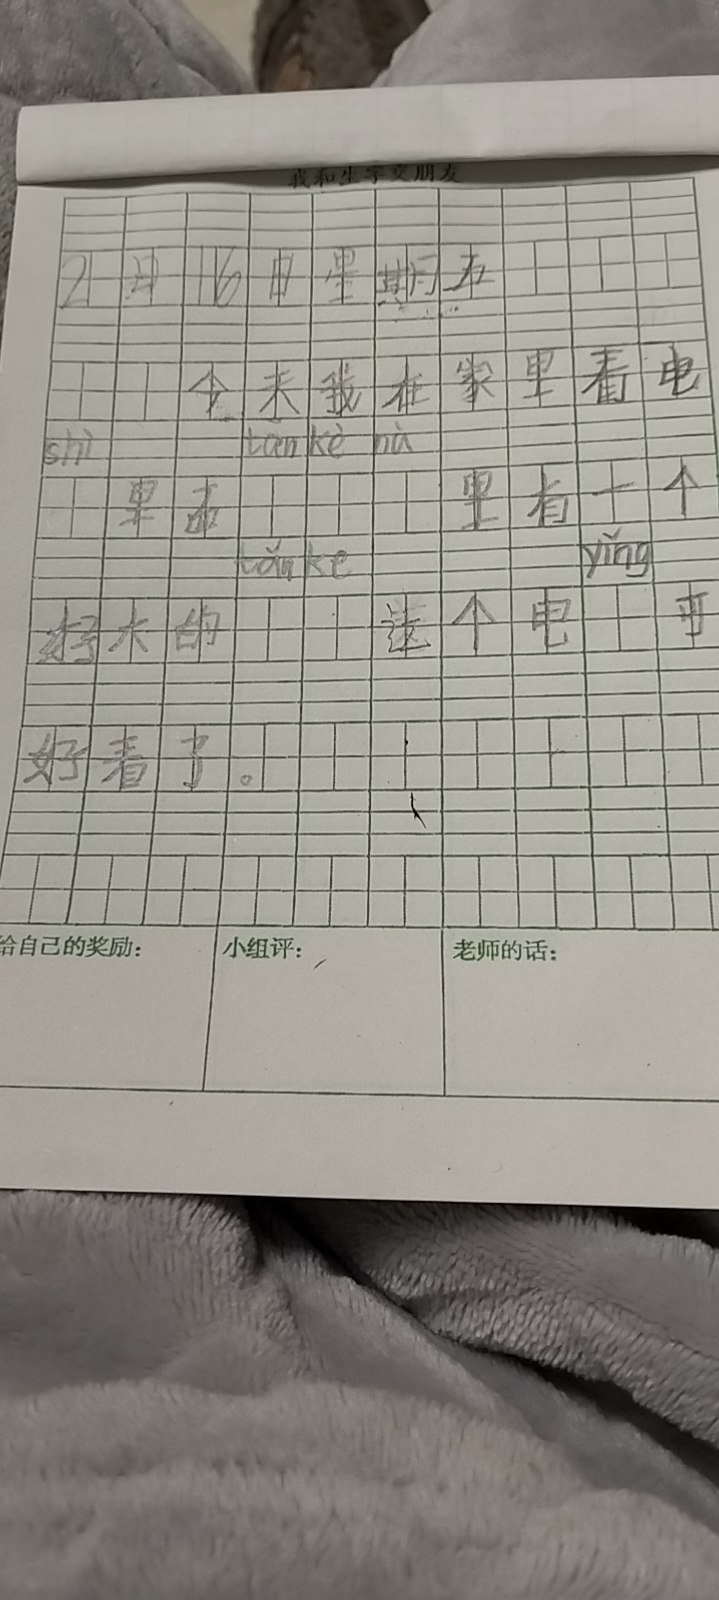 我和生字交朋友
2月16日星期五
今天我在家里看电
shì tǎn kè nà
里面 里有一个
tǎn ke yǐng
好大的 这个电 可
好看了。
给自己的奖励： 小组评： 老师的话：